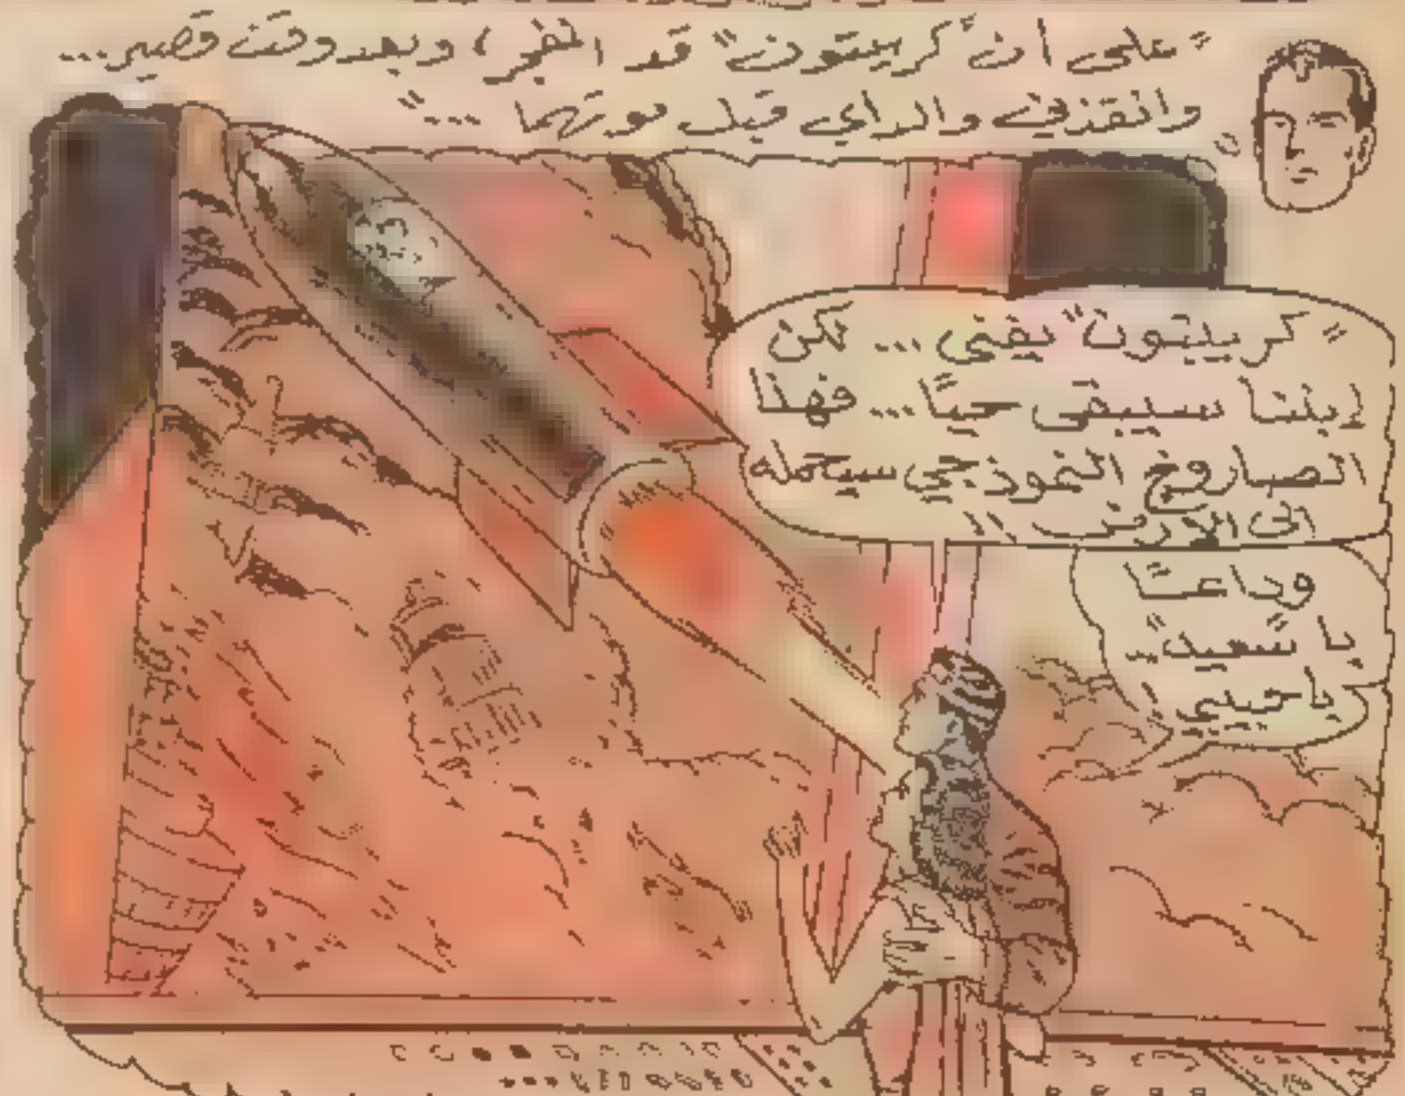 "على ان "كريبتون" قد انفجر، وبعد وقت قصير...
وانقذني والداي قبل موتهما ..."
"كريبتون" يفنى ... لكن
إبننا سيبقى حيًا... فهذا
الصاروخ النموذجي سيحمله
الى الارض !!
وداعـًا
يا "سعيد"..
يا حبيبي !